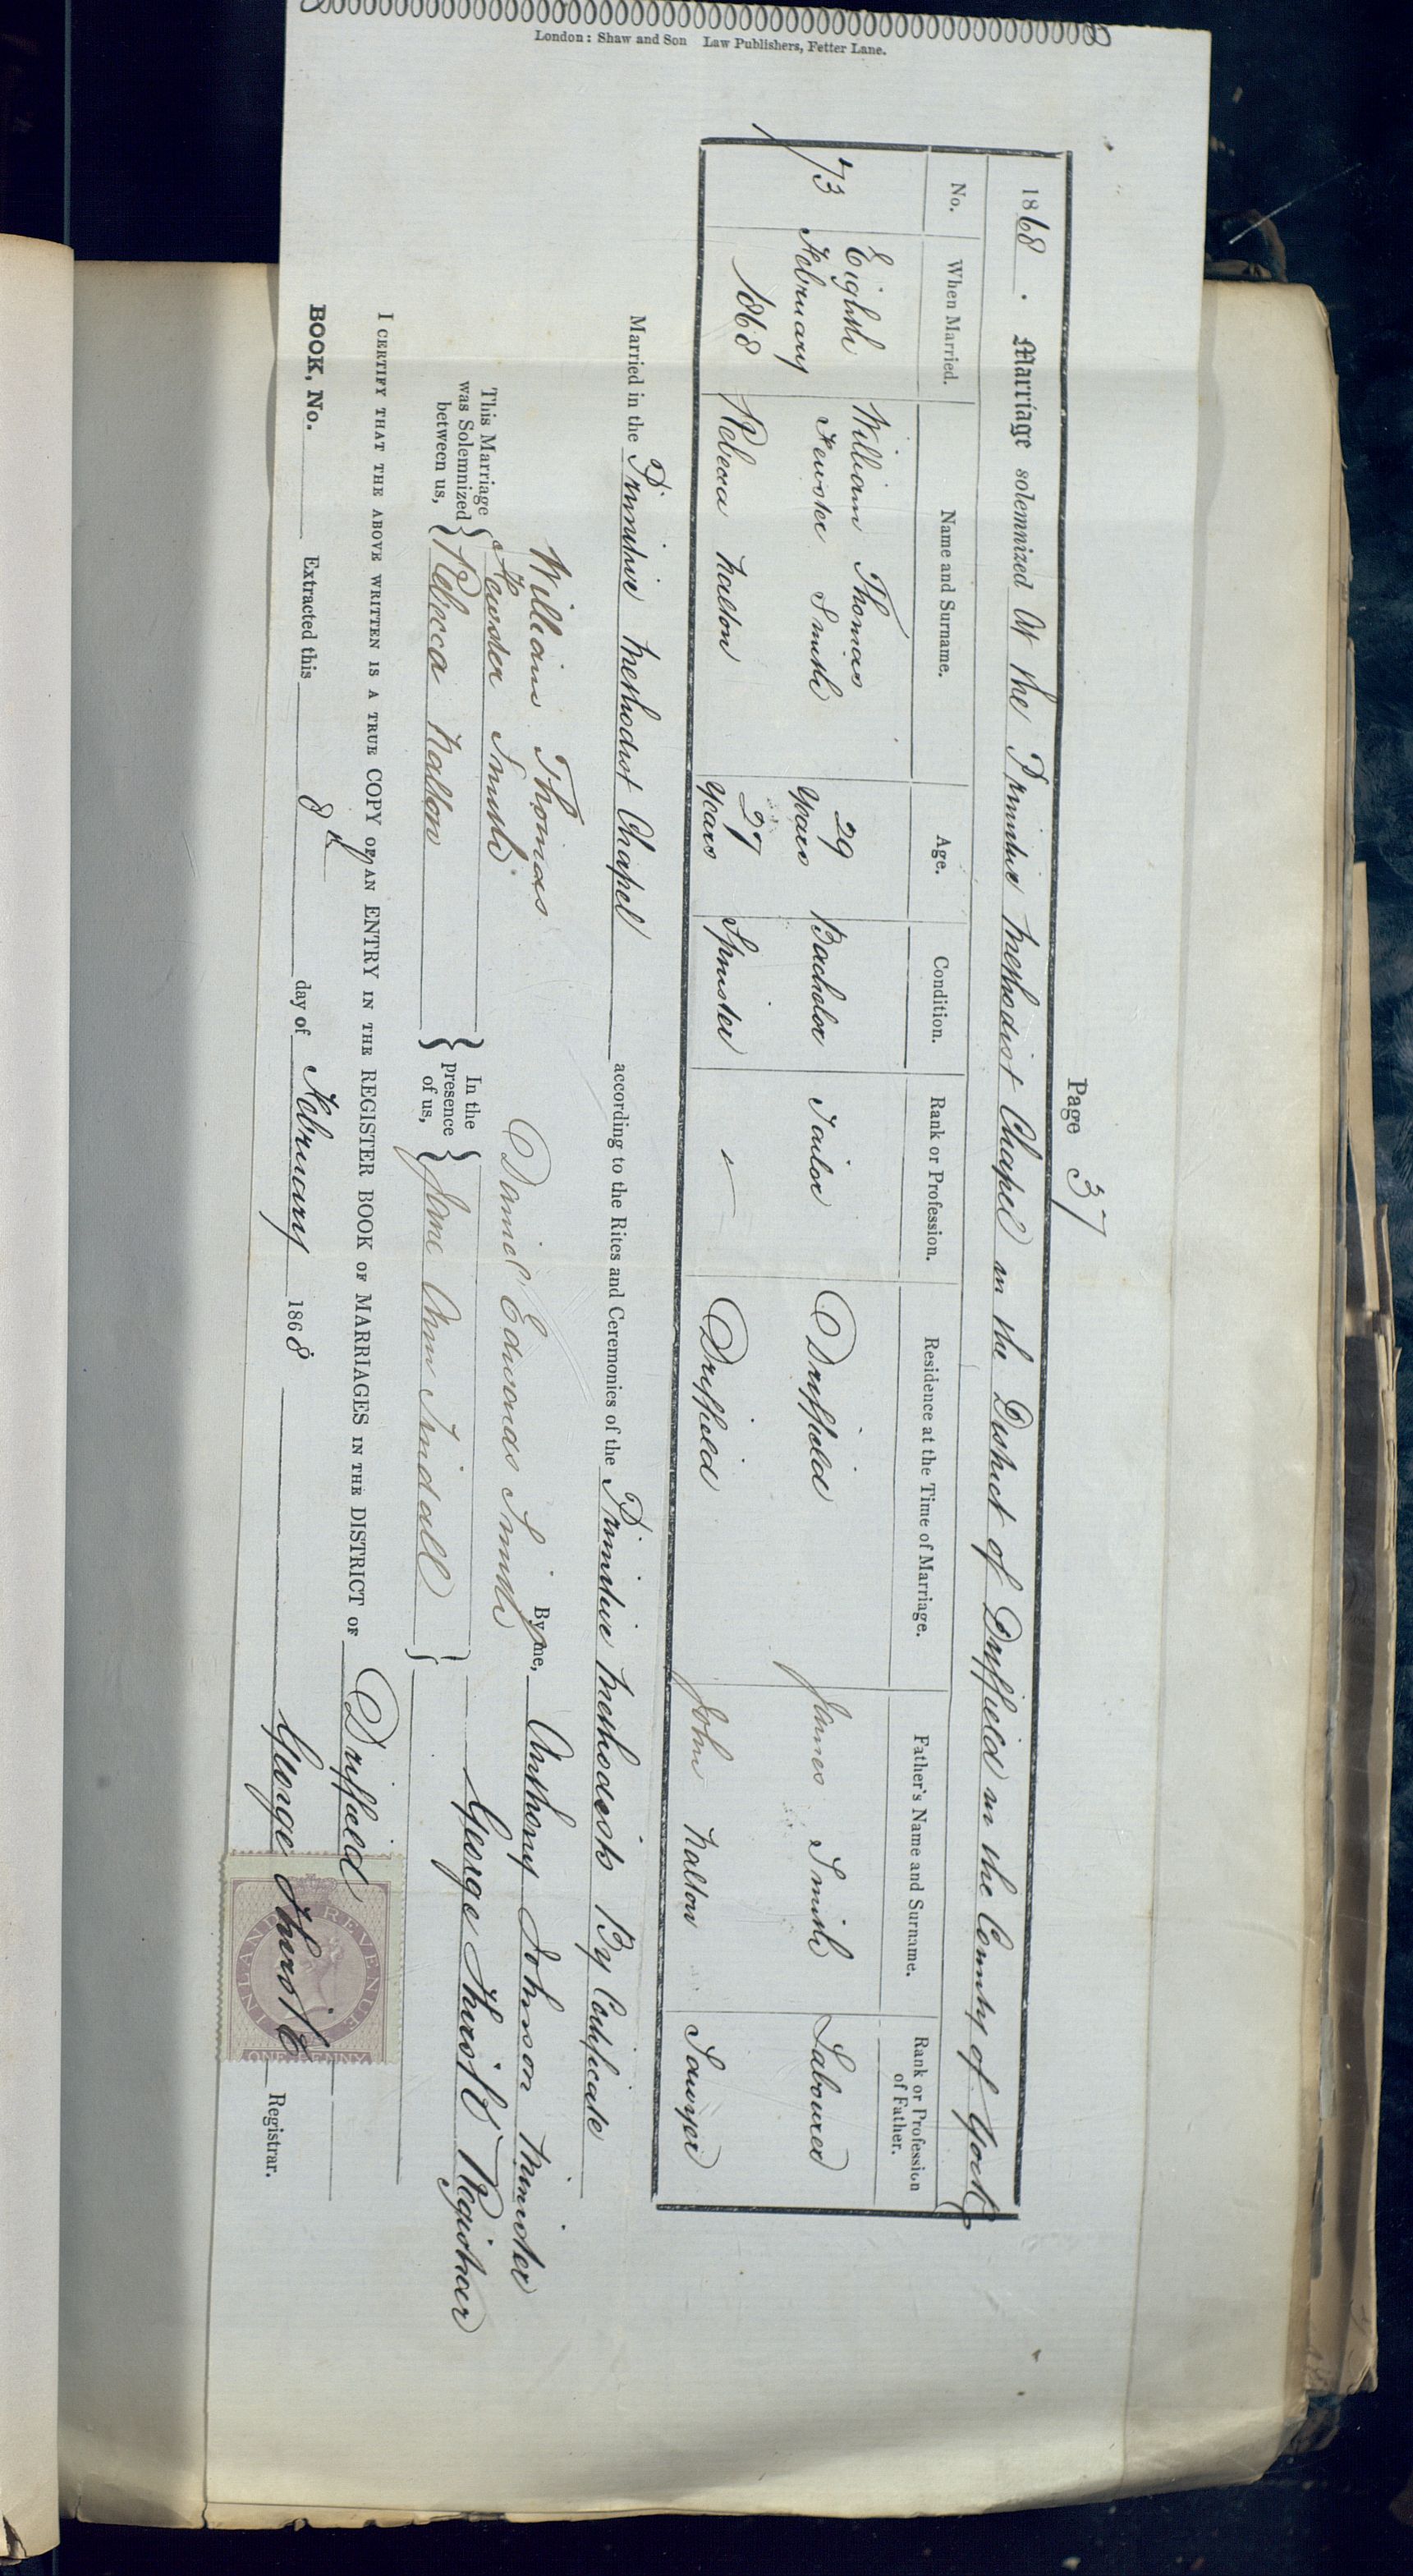 London: Shaw and Son Law Publishers, Fetter Lane.
Page 37
1868. Marriage solemnized At the Primitive Methodist Chapel in the District of Driffield in the County of York
No. When Married. Name and Surname. Age. Condition. Rank or Profession. Residence at the Time of Marriage. Father's Name and Surname. Rank or Profession of Father.
73 Eighth February 1868 William Thomas Fewster Smith 29 years Bachelor Tailor Driffield James Smith Labourer
Rebecca Nalton 27 years Spinster Driffield John Nalton Sawyer
Married in the Primitive Methodist Chapel according to the Rites and Ceremonies of the Primitive Methodists By Certificate
This Marriage was Solemnized between us, William Thomas Fewster Smith Rebecca Nalton
In the presence of us, Daniel Edwards Smith Jane Ann Tindall
By me, Anthony Johnson Minister
George Registrar
I CERTIFY THAT THE ABOVE WRITTEN IS A TRUE COPY OF AN ENTRY IN THE REGISTER BOOK OF MARRIAGES IN THE DISTRICT OF Driffield
BOOK, No. Extracted this 8th day of February 1868 George Registrar.
INLAND REVENUE
ONE PENNY